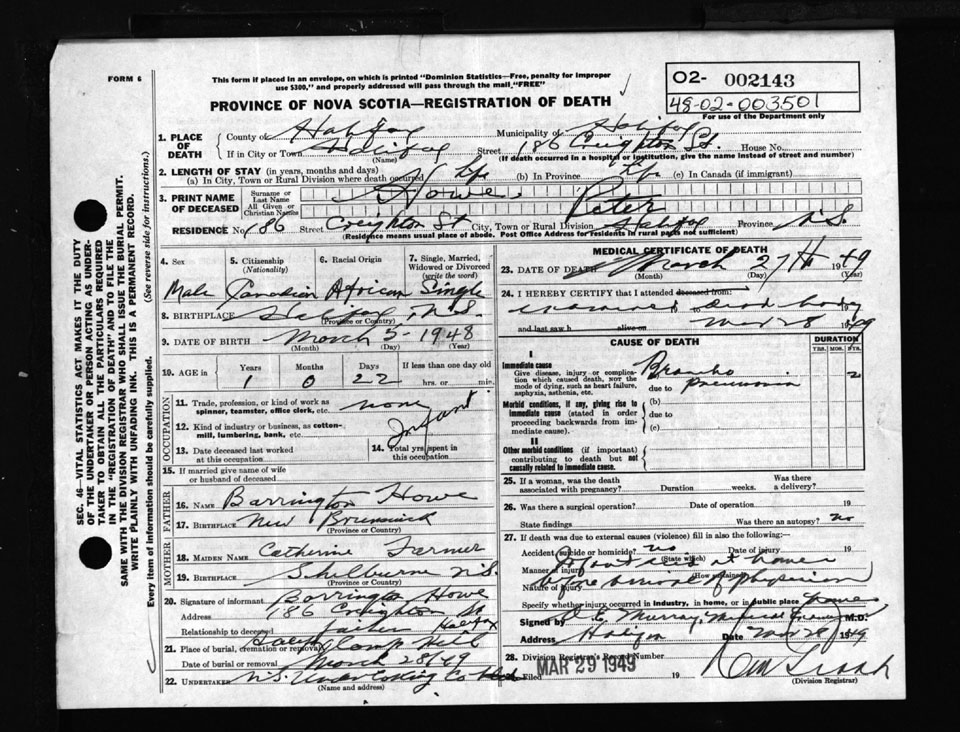 FORM 6
This form if placed in an envelope, on which is printed "Dominion Statistics—Free, penalty for improper
use $300," and properly addressed will pass through the mail "FREE"
O2- 002143
48-02-003501
For use of the Department only
PROVINCE OF NOVA SCOTIA—REGISTRATION OF DEATH
SEC. 46—VITAL STATISTICS ACT MAKES IT THE DUTY
OF THE UNDERTAKER OR PERSON ACTING AS UNDER-
TAKER TO OBTAIN ALL THE PARTICULARS REQUIRED
IN THE "REGISTRATION OF DEATH" AND TO FILE THE
SAME WITH THE DIVISION REGISTRAR WHO SHALL ISSUE THE BURIAL PERMIT.
WRITE PLAINLY WITH UNFADING INK. THIS IS A PERMANENT RECORD.
Every item of information should be carefully supplied. (See reverse side for instructions.)
1. PLACE OF DEATH
County of Halifax Municipality of Halifax
If in City or Town Halifax Street 186 Creighton St. House No.
(Name) (If death occurred in a hospital or institution, give the name instead of street and number)
2. LENGTH OF STAY (in years, months and days)
(a) In City, Town or Rural Division where death occurred Life (b) In Province Life (c) In Canada (if immigrant)
3. PRINT NAME OF DECEASED
Surname or Last Name Howe
All Given or Christian Names Peter
RESIDENCE No. 186 Street Creighton St City, Town or Rural Division Halifax Province N.S.
(Residence means usual place of abode. Post Office Address for residents in rural parts not sufficient)
4. Sex 5. Citizenship (Nationality) 6. Racial Origin 7. Single, Married, Widowed or Divorced (write the word)
Male Canadian African Single
8. BIRTHPLACE Halifax, N.S.
(Province or Country)
9. DATE OF BIRTH March 5 1948
(Month) (Day) (Year)
10. AGE Years Months Days If less than one day old
1 0 22 hrs. or min.
OCCUPATION
11. Trade, profession, or kind of work as spinner, teamster, office clerk, etc. none
12. Kind of industry or business, as cotton-mill, lumbering, bank, etc. Infant
13. Date deceased last worked at this occupation
14. Total yrs spent in this occupation
15. If married give name of wife or husband of deceased
FATHER
16. NAME Barrington Howe
17. BIRTHPLACE New Brunswick
(Province or Country)
MOTHER
18. MAIDEN NAME Catherine Farmer
19. BIRTHPLACE Shelburne N.S.
(Province or Country)
20. Signature of informant Barrington Howe
Address 186 Creighton St Halifax
Relationship to deceased Father
21. Place of burial, cremation or removal Camp Hill
Date of burial or removal March 28/49
22. UNDERTAKER N.S. Undertaking Co
(Name and address)
MEDICAL CERTIFICATE OF DEATH
23. DATE OF DEATH March 27th 1949
(Month) (Day) (Year)
24. I HEREBY CERTIFY that I attended deceased from:
examined dead body
and last saw h alive on Mar 28 1949
CAUSE OF DEATH
DURATION
YRS. MOS. DYS.
I
Immediate cause
Give disease, injury or complication which caused death, NOT the mode of dying, such as heart failure, asphyxia, asthenia, etc.
(a) Broncho 2
due to pneumonia
Morbid conditions, if any, giving rise to immediate cause (stated in order proceeding backwards from immediate cause).
(b)
due to
(c)
II
Other morbid conditions (if important) contributing to death but not causally related to immediate cause.
25. If a woman, was the death associated with pregnancy? Duration weeks. Was there a delivery?
26. Was there a surgical operation? Date of operation 19
State findings Was there an autopsy? No
27. If death was due to external causes (violence) fill in also the following:
Accident, suicide or homicide? no Date of injury 19
(State which)
Manner of injury at home
(How sustained)
Nature of injury before arrival of physician
Specify whether injury occurred in industry, in home, or in public place
Signed by Murray, Medical Examiner M.D.
Address Halifax Date Mar 28 1949
28. Division Registrar's Record Number
Filed MAR 29 1949 19
(Division Registrar)